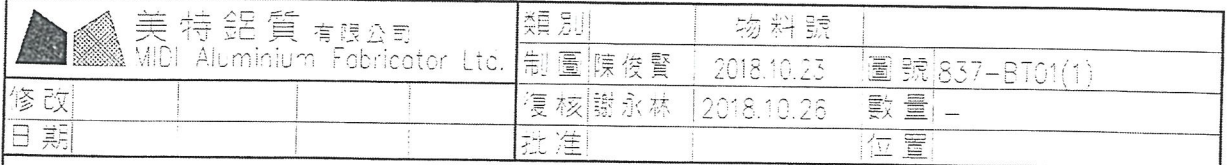 美特鋁質有限公司
MIDI Aluminium Fabricator Ltd.
類別 物料號
制圖 陳俊賢 2018.10.23 圖號 837-BT01(1)
修改 復核 謝永林 2018.10.26 數量 -
日期 批准 位置